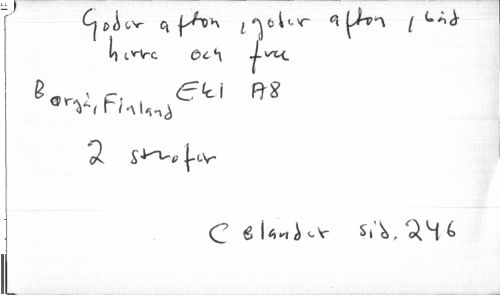 Goder afton, goder afton, båd
herre och fru
Borgå, Finland EKI A8
2 strofer
Celander sid. 246